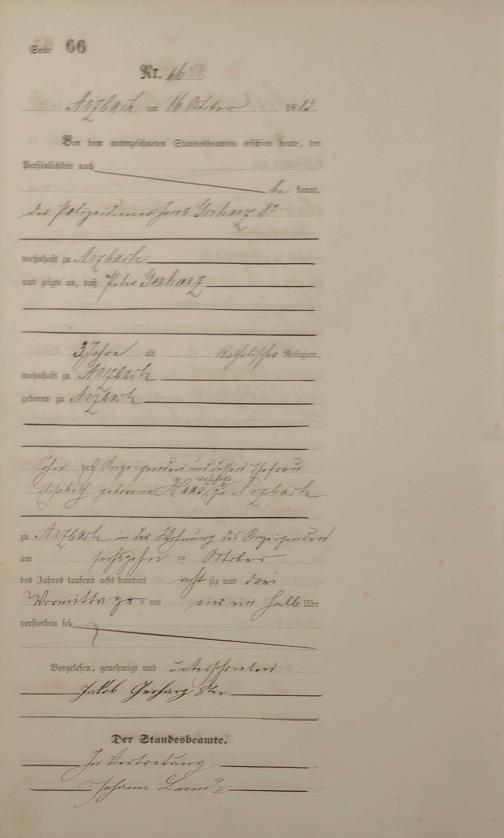 Seite 66
Nr. 66
Arzbach am 16 Oktober 1883
Vor dem unterzeichneten Standesbeamten erschien heute, der
Persönlichkeit nach
be kannt,
der Polizeidiener Jacob Gerharz 8r
wohnhaft zu Arzbach
und zeigte an, daß Peter Gerharz
3 Jahre alt katholischer Religion,
wohnhaft zu Arzbach
geboren zu Arzbach
Sohn des Anzeigenden und dessen Ehefrau
Elisabeth geborene Haas zu Arzbach
zu Arzbach in der Wohnung des Anzeigenden
am sechszehn ten Oktober
des Jahres tausend acht hundert acht zig und drei
Vormittags um ein halb Uhr
verstorben sei
Vorgelesen, genehmigt und unterschrieben
Jakob Gerharz 8ter
Der Standesbeamte.
In Vertretung
Johann